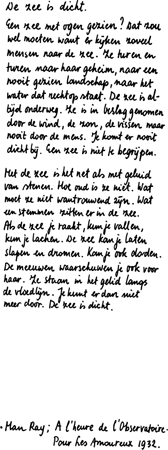 De zee is dicht.
Een zee met ogen gezien? Dat zou
wel moeten want er kijken zoveel
mensen naar de zee. Ze turen en
turen maar haar geheim, naar een
nooit gezien landschap, maar het
water dat rechtop staat. De zee is al-
tijd onderweg. Ze is in beslag genomen
door de wind, de zon, de vissen maar
nooit door de mens. Je komt er nooit
dichtbij. Een zee is niet te begrijpen.

Met de zee is het net als met geluid
van stenen. Hoe oud is ze niet. Wat
moet ze niet wantrouwend zijn. Wat
een stemmen zitten er in de zee.
Als de zee je raakt, kun je vallen,
kun je lachen. De zee kan je laten
slapen en dromen. Kan je ook doden.
De meeuwen waarschuwen je ook voor
haar. Ze staan in het gelid langs
de vloedlijn. Je kunt er dan niet
meer door. De zee is dicht.

• Man Ray; A l'heure de l'Observatoire -
Pour Les Amoureux 1932.